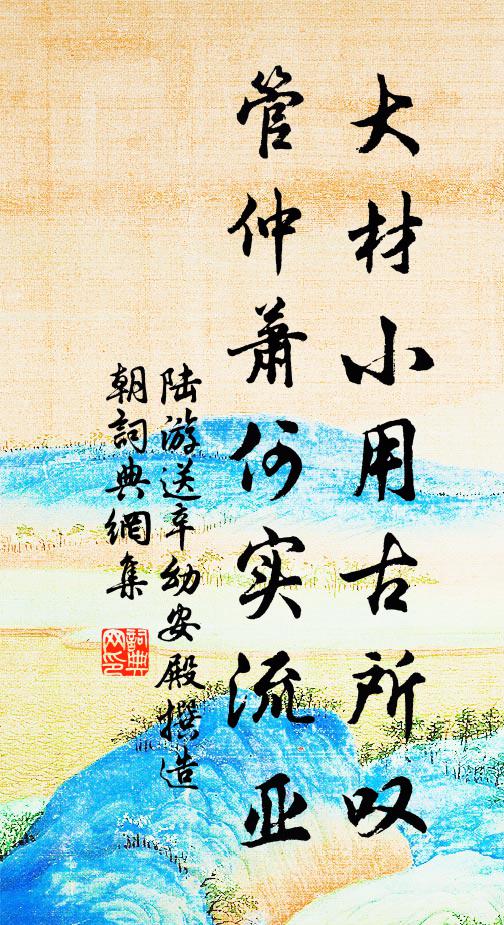 大材小用古所叹
管仲萧何实流亚
陆游送辛幼安殿撰造
朝詞典網集
詞典网印